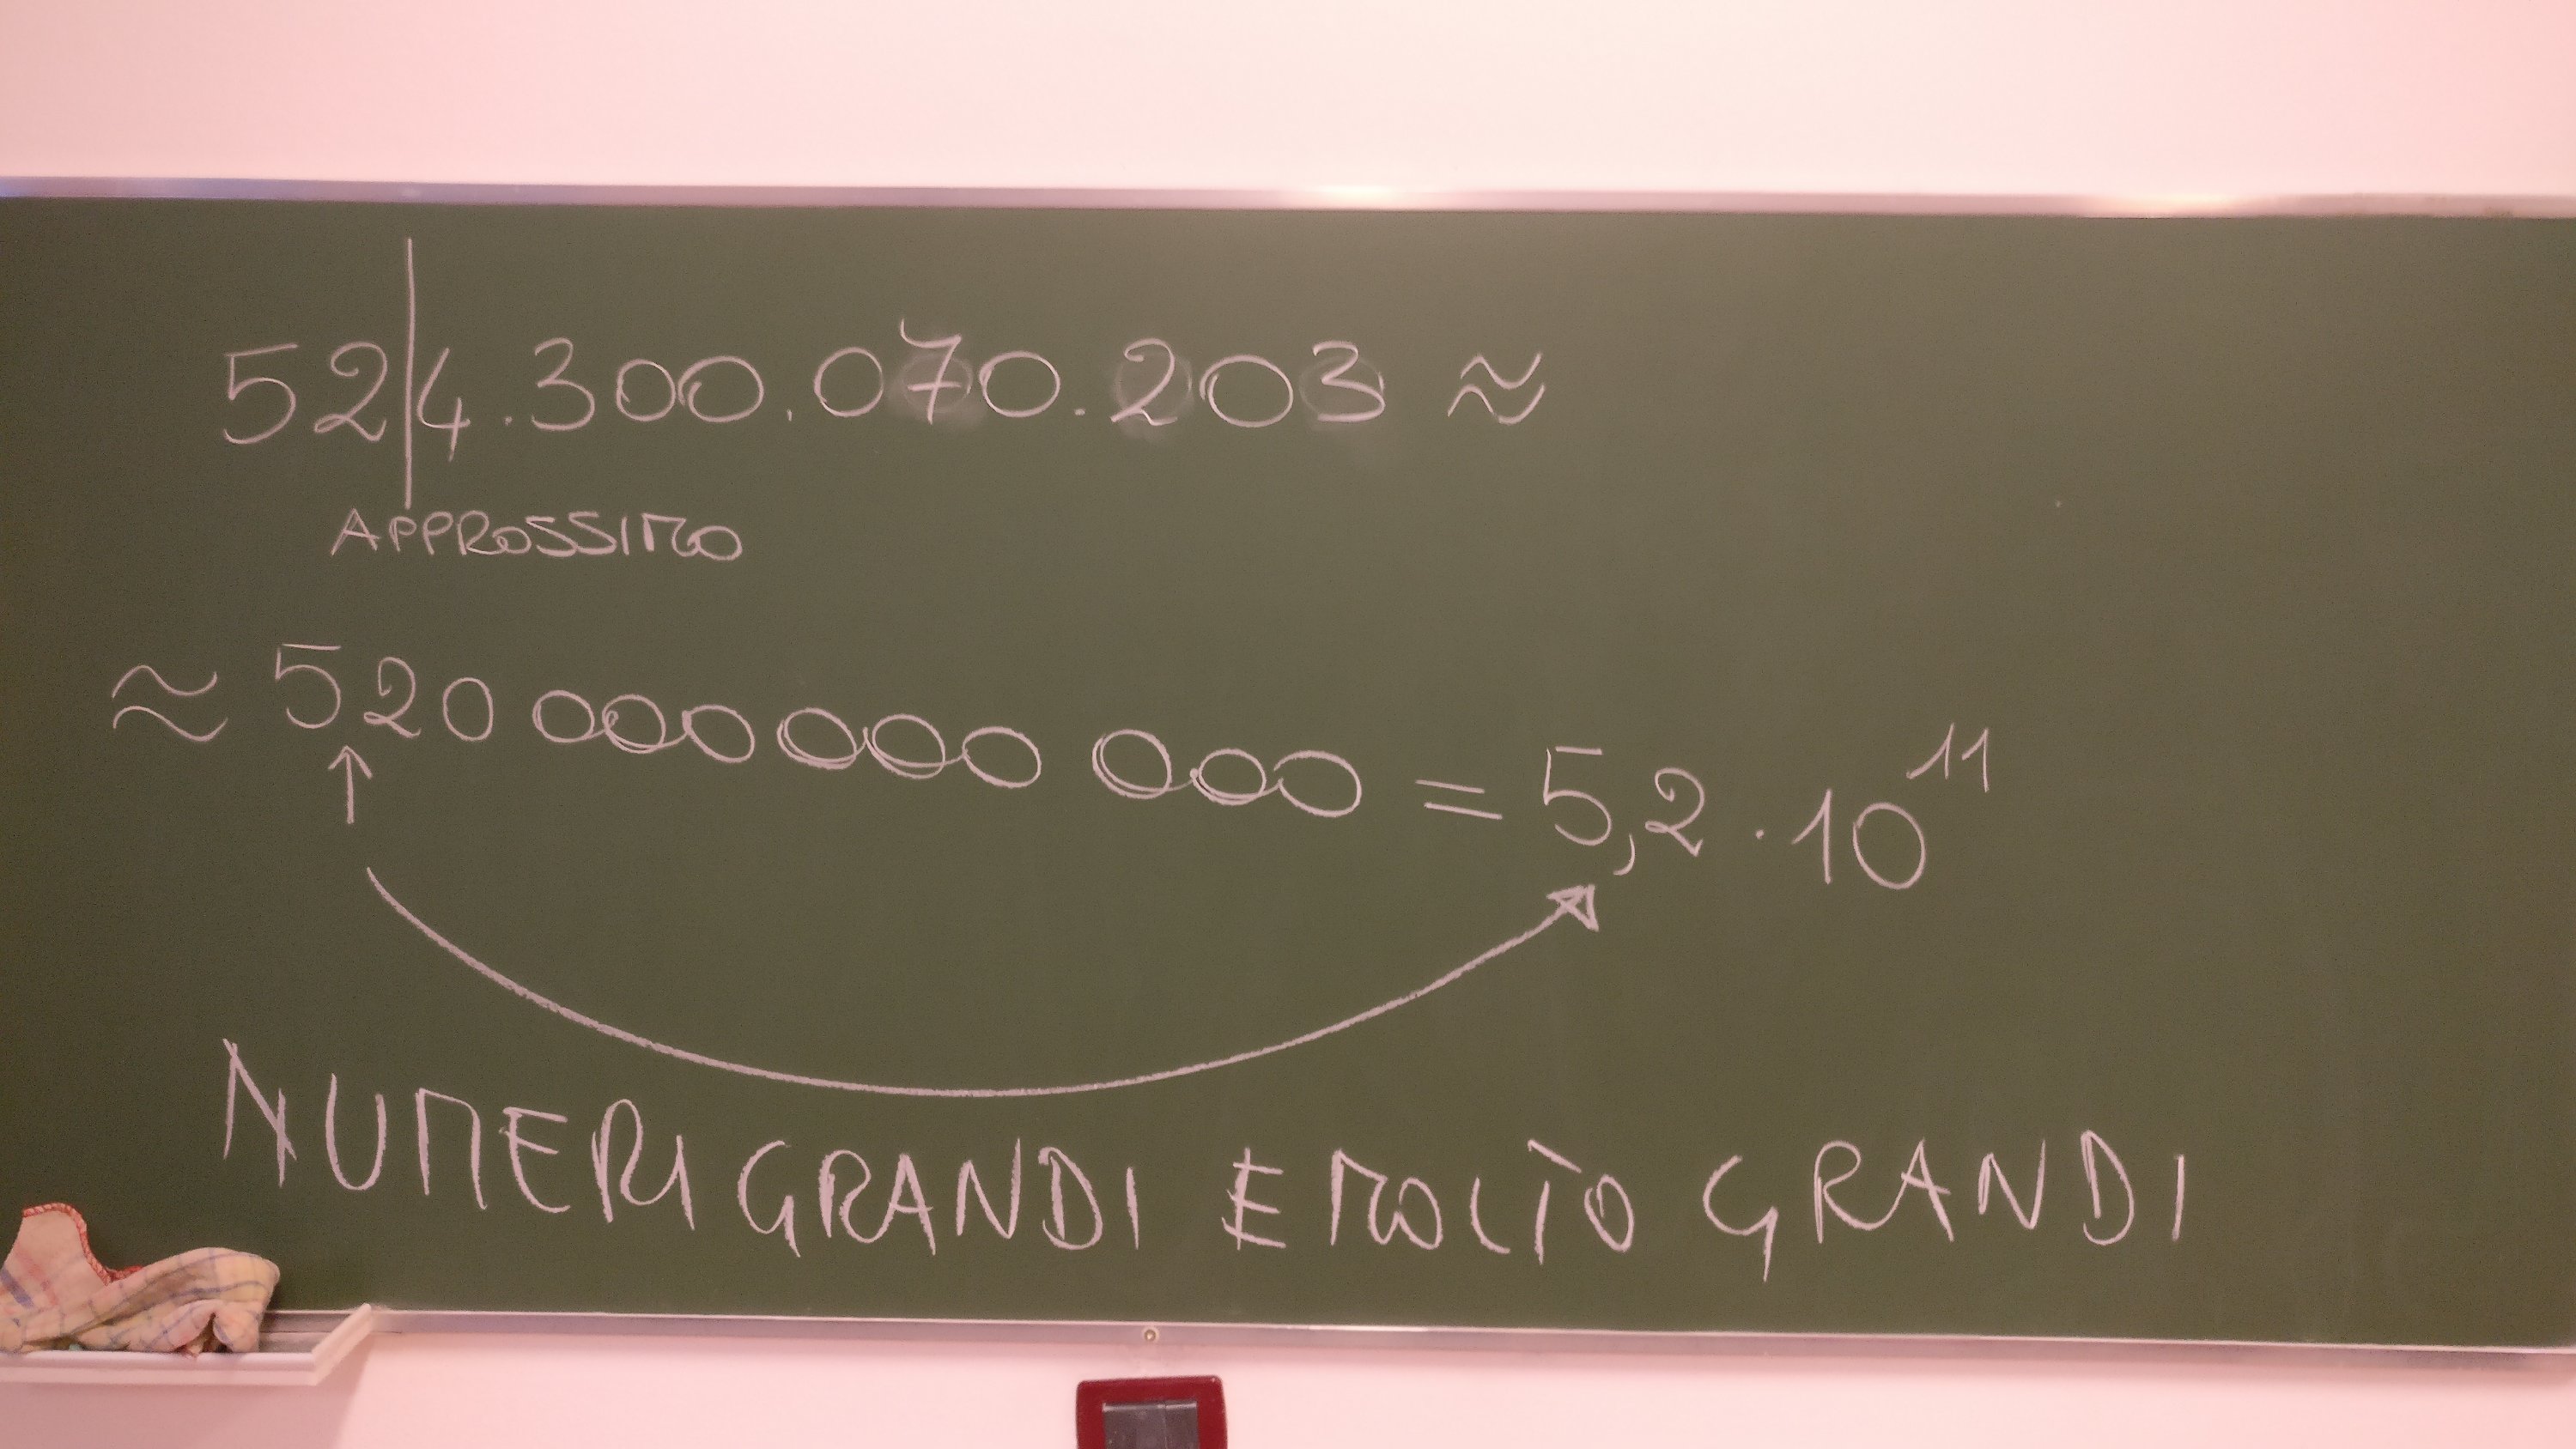 52|4.300.070.203 ≈
APPROSSIMO
≈ 520 000 000 000 = 5,2 · 10¹¹
NUMERI GRANDI E MOLTO GRANDI